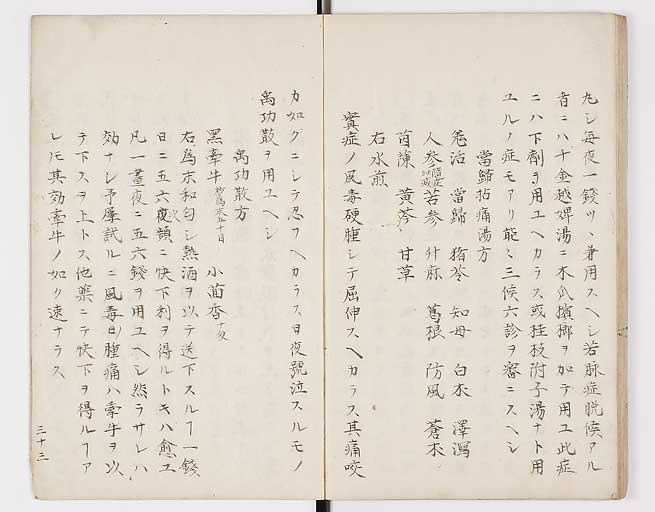 丸シ毎夜一錢ツヽ兼用スヘシ若脉症脱候アル
者ニハ十金越婢湯ニ木瓜檳榔ヲ加テ用ユ此症
ニハ下劑ヲ用ユヘカラス或桂枝附子湯ナト用
ユルノ症モアリ能々三候六診ヲ審ニスヘシ
當歸拈痛湯方
羗活 當歸 猪苓 知母 白朮 澤瀉
人参 苦参 升麻 葛根 防風 蒼朮
茵蔯 黄芩 甘草
右水煎
實症ノ風毒硬腫シテ屈伸スヘカラス其痛咬
カ如クニシテ忍フヘカラス日夜號泣スルモノ
禹功散ヲ用ユヘシ
禹功散方
黒牽牛 小茴香
右爲末和匀シ熱酒ヲ以テ送下スルヿ一錢
日ニ五六夜頓ニ快下利ヲ得ルトキハ愈ユ
凡一晝夜ニ五六錢ヲ用ユヘシ然ラサレハ
効ナシ予屢試ルニ風毒腫痛ハ牽牛ヲ以
テ下スヲ上トス他藥ニテ快下ヲ得ルヿア
レ𪜈其効牽牛ノ如ク速ナラス
三十三